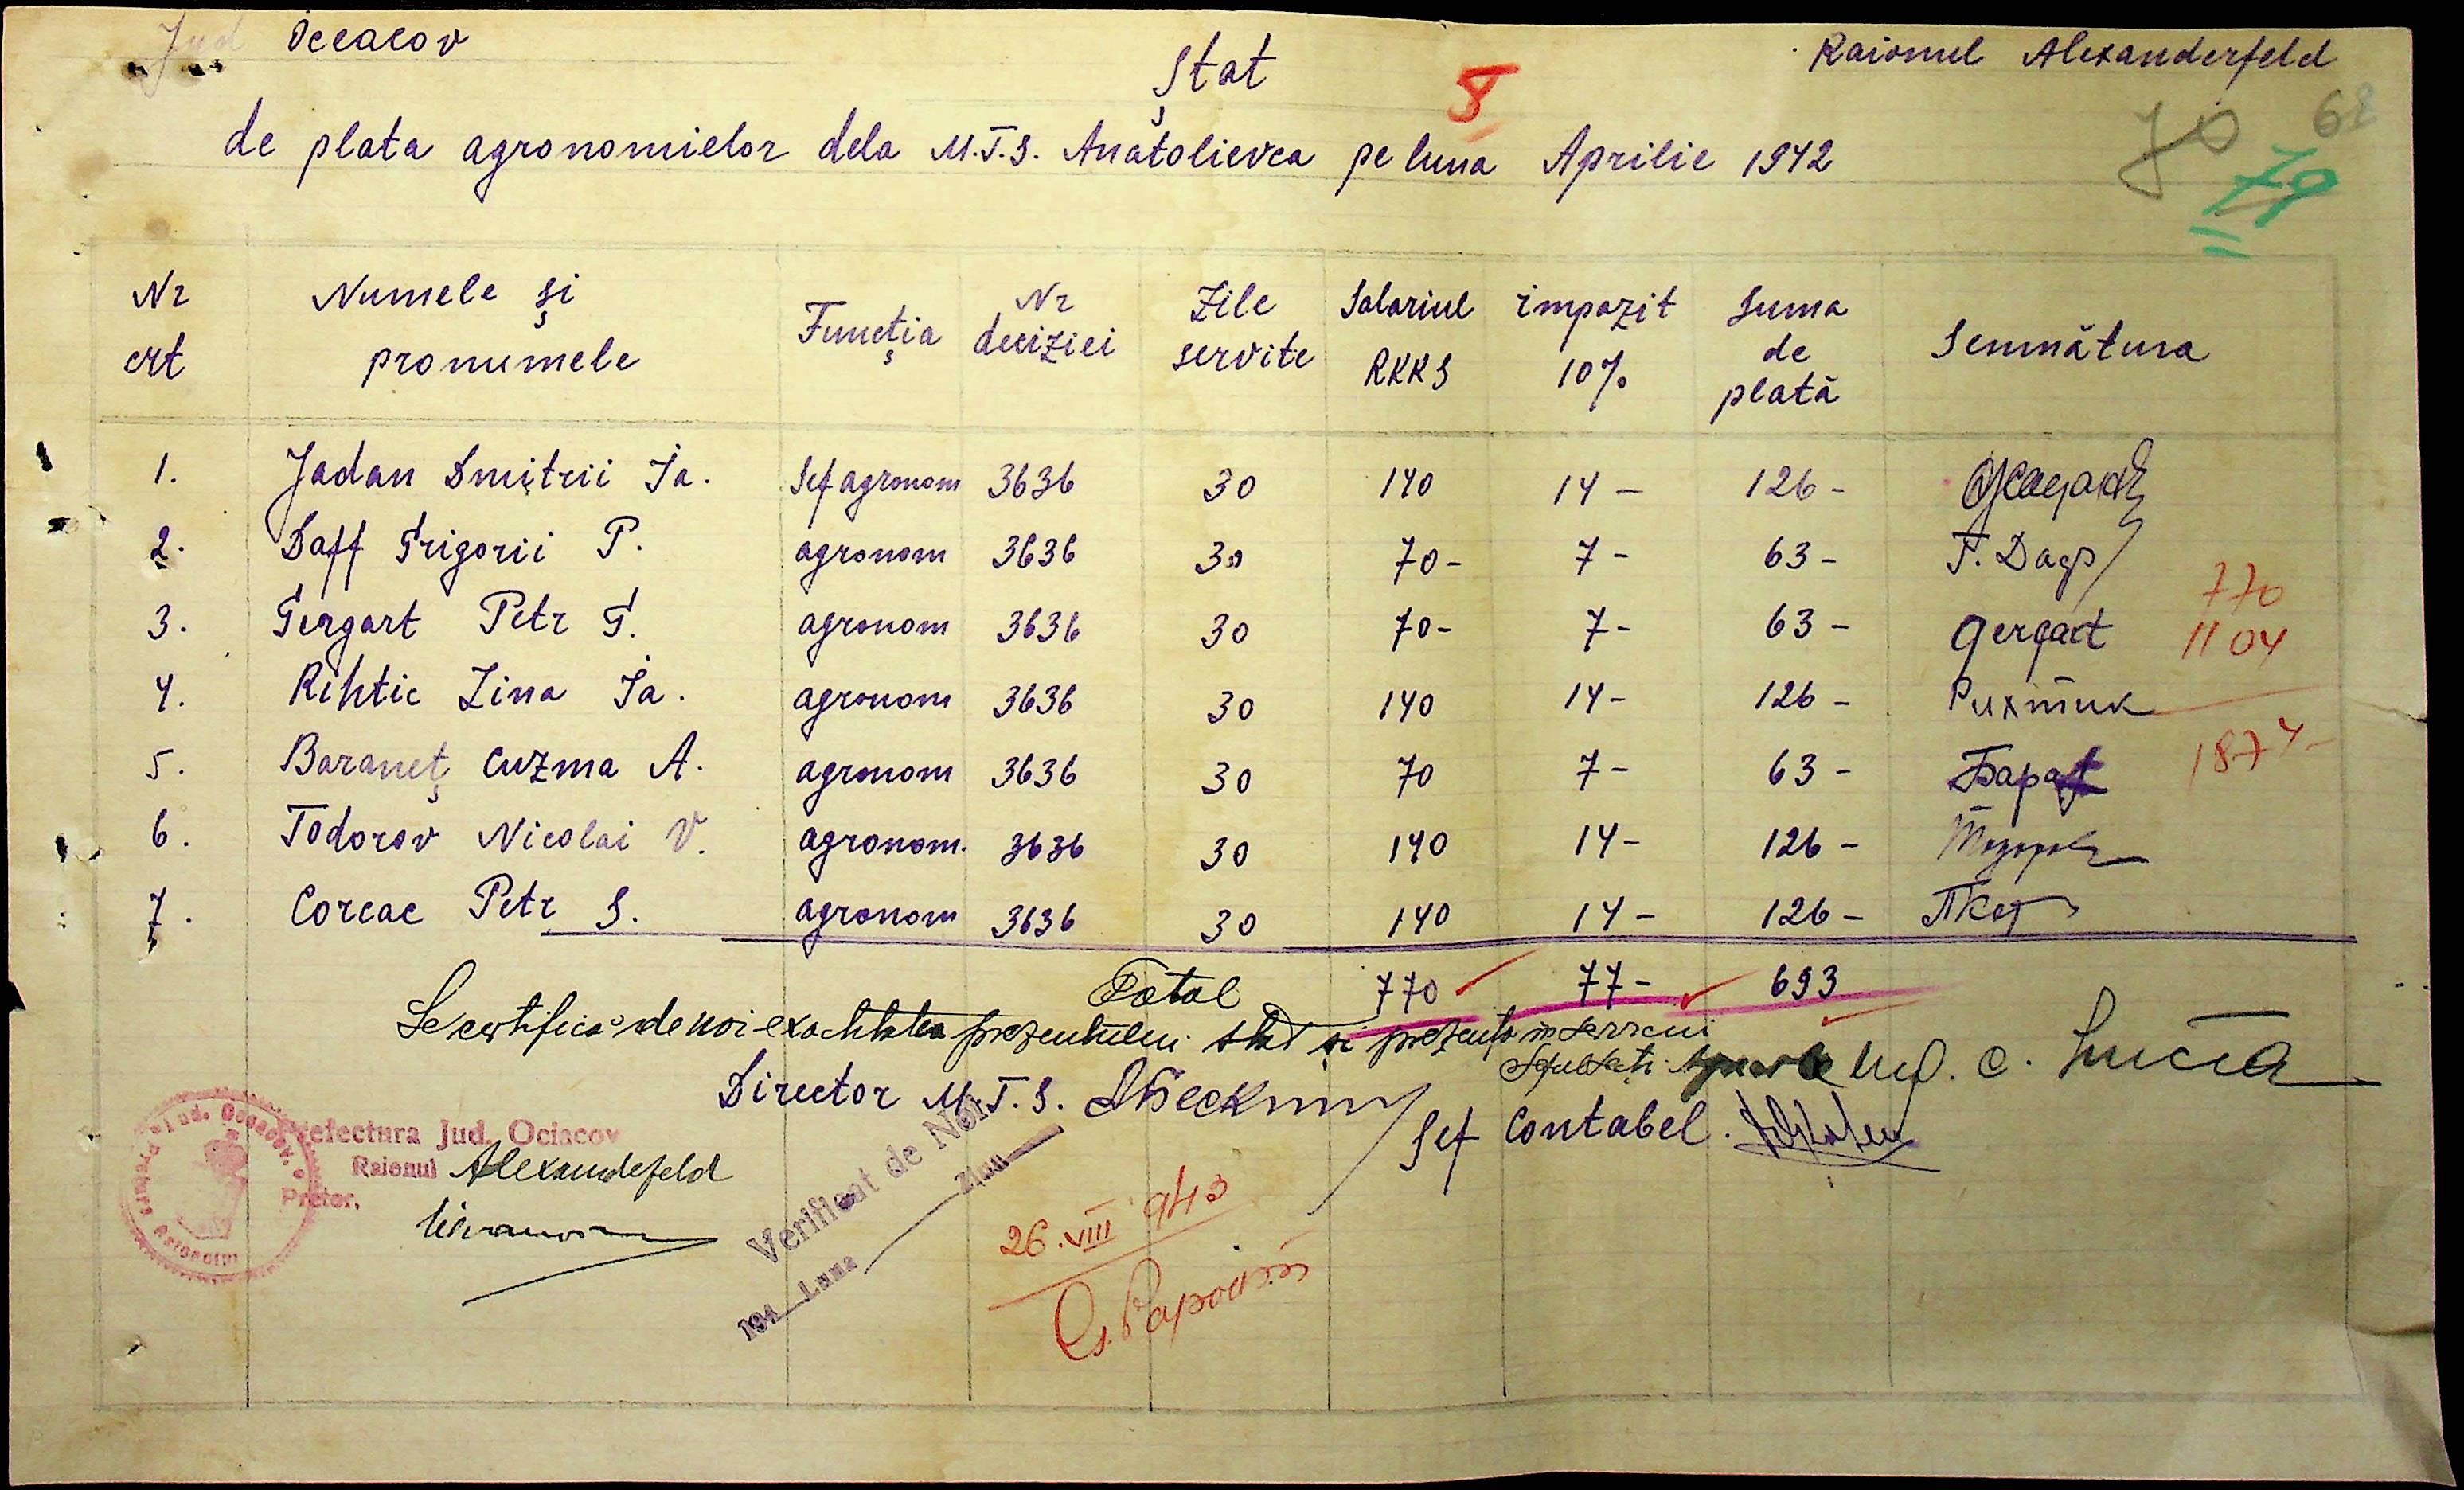 Jud Oceacov
Raionul Alexanderfeld
Ștat
5
70 68
79
de plata agronomielor dela M.T.S. Anatolievca pe luna Aprilie 1942
Nr crt Numele și pronumele Funcția Nr deciziei Zile servite Salariul RKKS impozit 10% Suma de plată Semnătura
1. Jadan Dmitrii Ia. Șef agronom 3636 30 140 14 - 126 -
2. Daff Grigorii P. agronom 3636 30 70 - 7 - 63 - Г. Даф
3. Gergart Petr G. agronom 3636 30 70 - 7 - 63 - Gergart
4. Rihtic Zina Ia. agronom 3636 30 140 14 - 126 - Рихтик
5. Baraneț Cuzma A. agronom 3636 30 70 7 - 63 - Бара
6. Todorov Nicolai V. agronom. 3636 30 140 14 - 126 - Тодоров
7. Corcac Petr S. agronom 3636 30 140 14 - 126 -
770
1104
1874 -
Total 770 77 - 693
Se certifică de noi exactitatea prezentului stat și prezența în serviciu
Director M.T.S.
Șef Contabel.
Prefectura Jud. Ociacov
Raionul Alexandefeld
Pretor.
Verificat de Noi
194 Luna Ziua
26.VIII 943